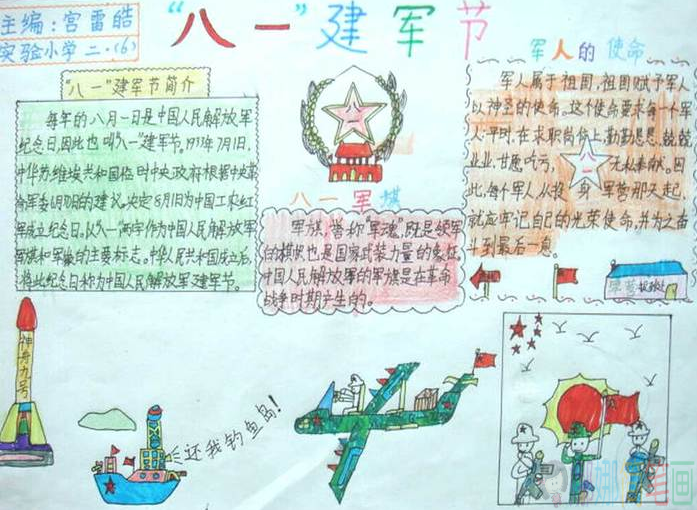 主编：宫雷皓
实验小学二·(6)
“八一”建军节
“八一”建军节简介
每年的八月一日是中国人民解放军
纪念日,因此也叫“八一”建军节。1933年7月1日,
中华苏维埃共和国临时中央政府根据中央革
命军委6月30日的建议。决定8月1日为中国工农红
军成立纪念日。以八一两字作为中国人民解放军
军旗和军徽的主要标志。中华人民共和国成立后,
将此纪念日称为中国人民解放军建军节。
八一军旗
军旗,誉称“军魂”,既是领军
的模状也是国家武装力量的象征。
中国人民解放军的军旗是在革命
战争时期产生的。
军人的使命
军人属于祖国,祖国赋予军人
以神圣的使命。这个使命要求每一个军
人:平时,在求职岗位上勤勤恳恳、兢兢
业业、甘愿吃亏、无私奉献。因
此,每个军人从投身军营那天起,
就应牢记自己的光荣使命,并为之奋
斗到最后一息。
神舟九号
还我钓鱼岛!